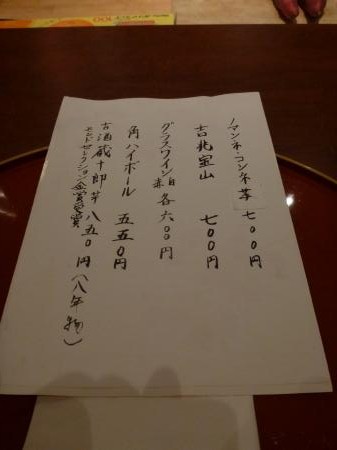 ノマンネ・コンネ芋 七〇〇円
吉兆宝山 七〇〇円
グラスワイン赤白各六〇〇円
角ハイボール 五五〇円
古酒蔵十郎芋 八五〇円(八年物)
モンドセレクション金賞受賞